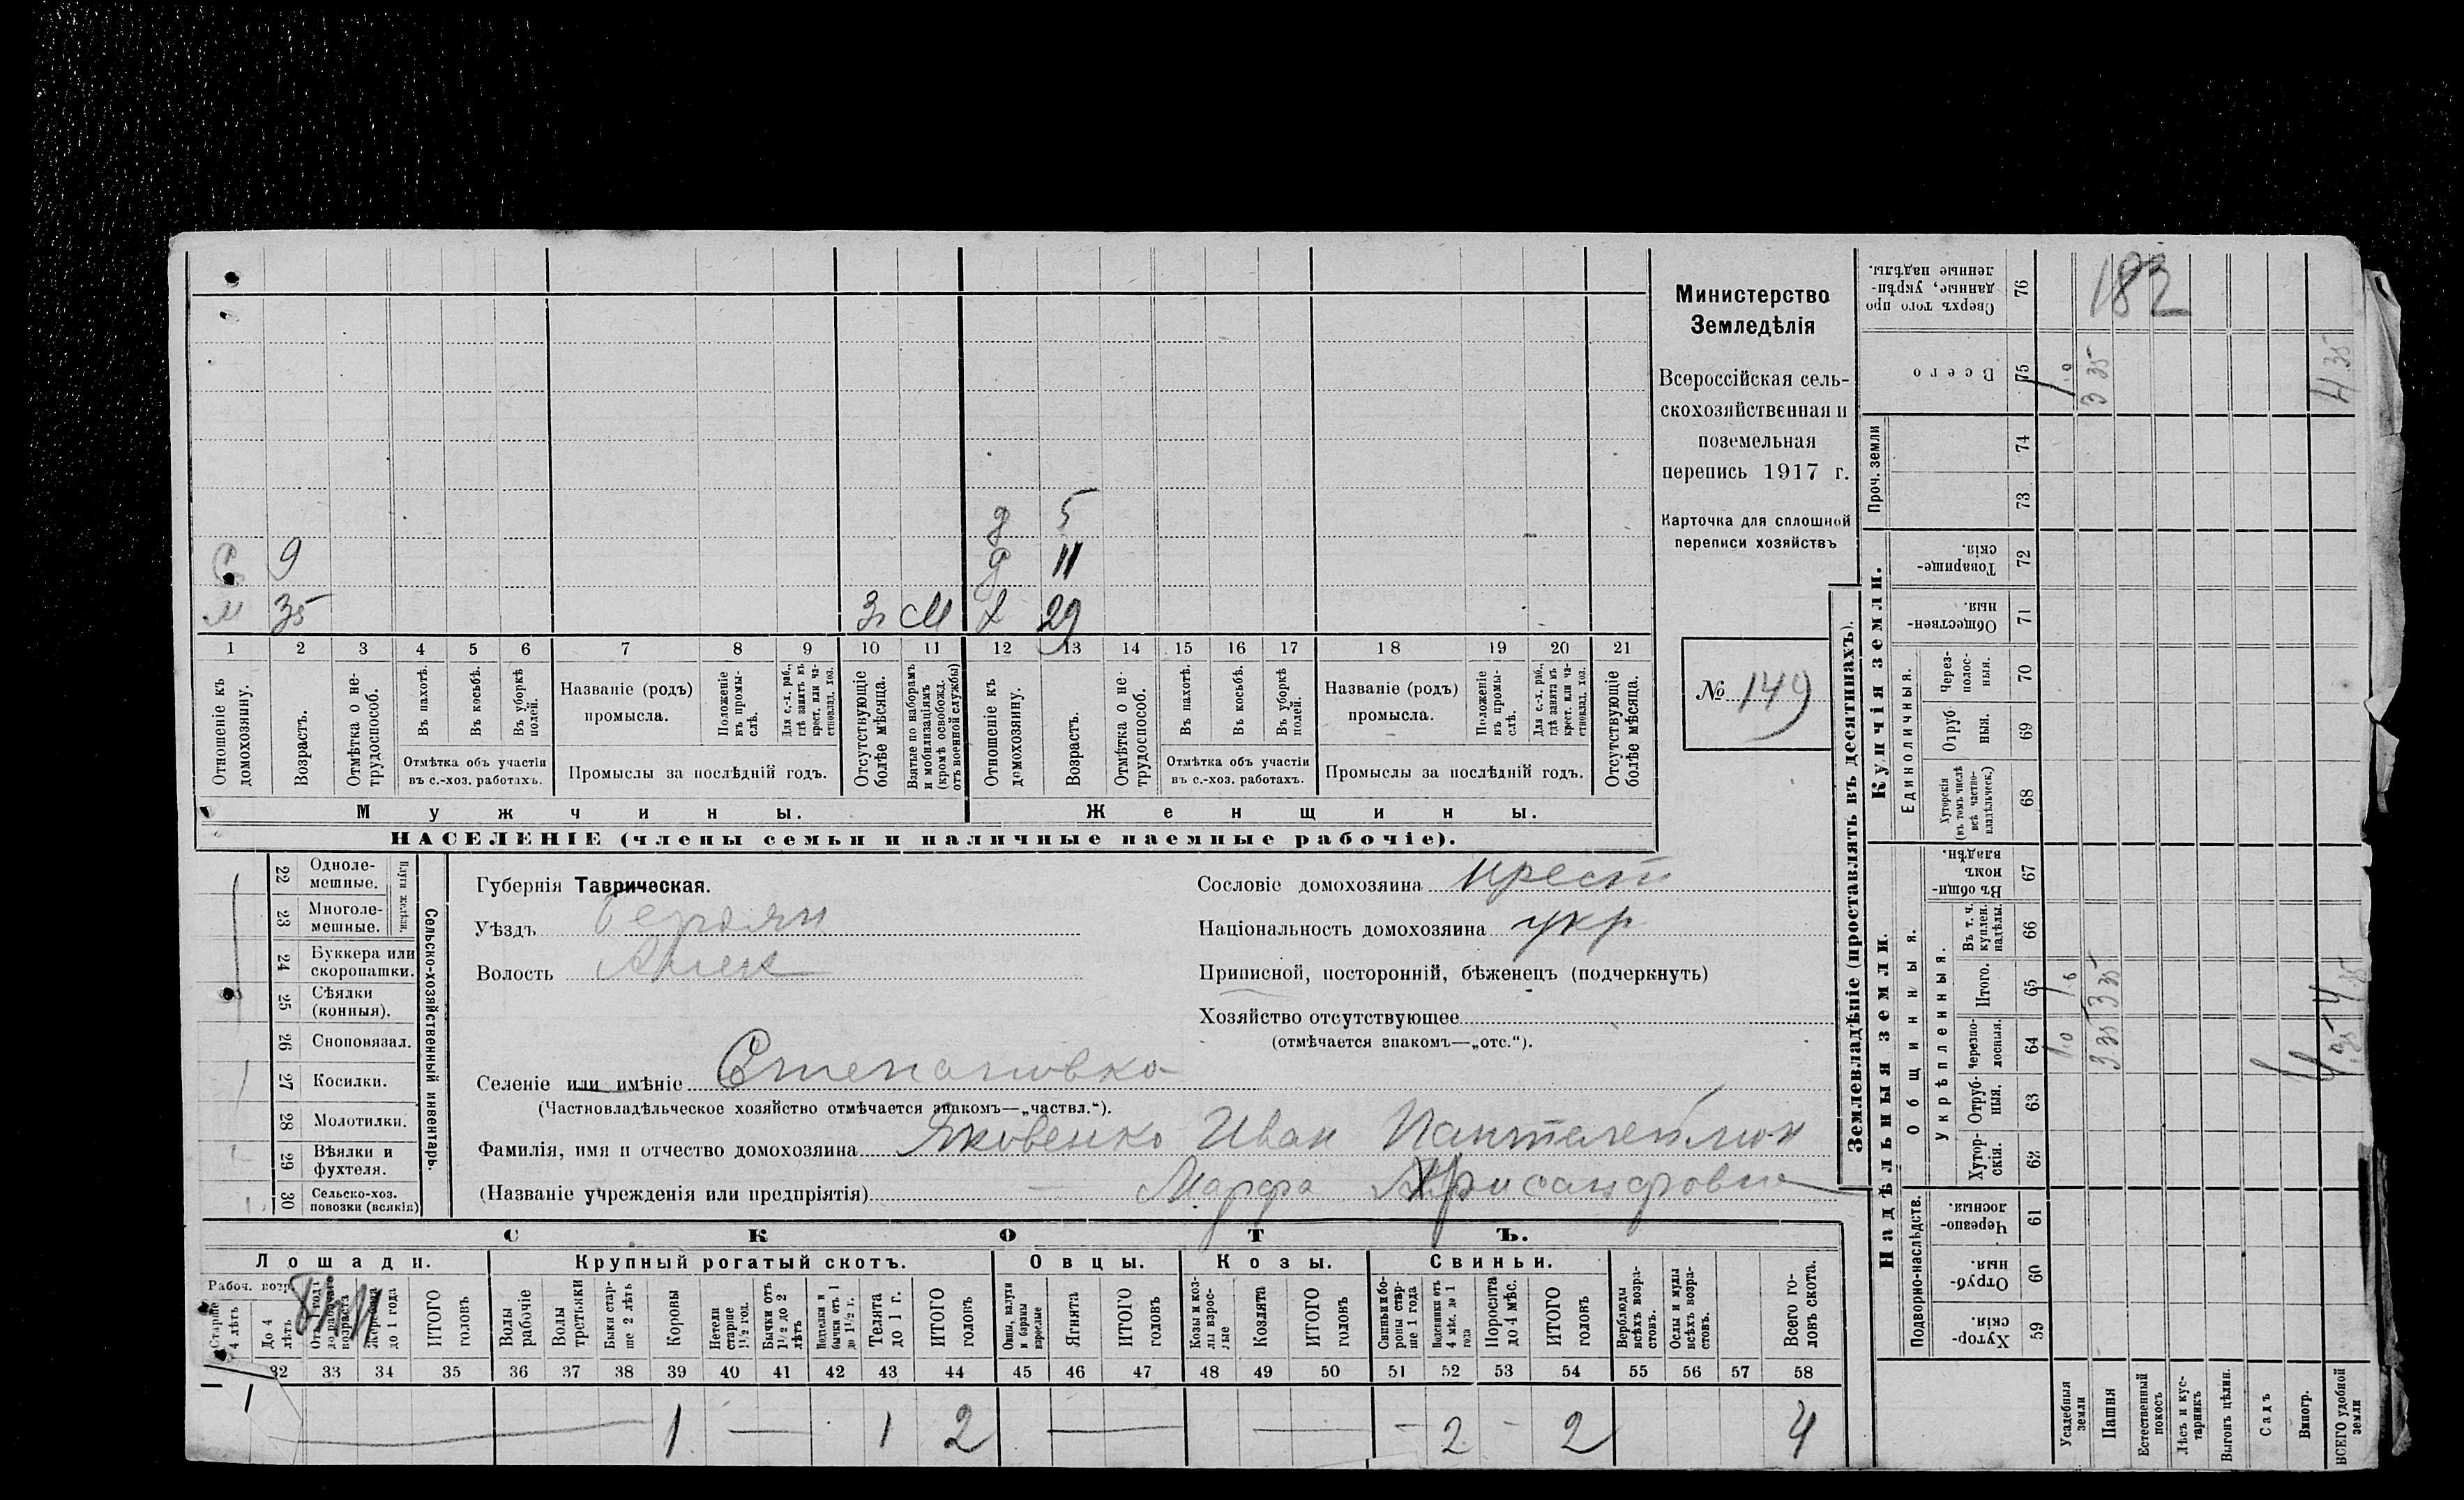 Министерство
Земледѣлія
Всероссійская сель-
скохозяйственная и
поземельная
перепись 1917 г.
Карточка для сплошной
переписи хозяйствъ
№ 149
182
д 5
С 9 д 11
м 35 М 29
1 2 3 4 5 6 7 8 9 10 11 12 13 14 15 16 17 18 19 20 21
Отношеніе къ домохозяину.
Возрастъ.
Отмѣтка о не-трудоспособ.
Въ пахотѣ.
Въ косьбѣ.
Въ уборкѣ полей.
Отмѣтка объ участіи
въ с.-хоз. работахъ.
Названіе (родъ)
промысла.
Положеніе въ промы-слѣ.
Для с.-х. раб., гдѣ занятъ въ крест. или ча-стновлад. хоз.
Промыслы за послѣдній годъ.
Отсутствующіе болѣе мѣсяца.
Взятые по наборамъ и мобилизаціямъ (кромѣ освобожд. отъ военной службы)
Отношеніе къ домохозяину.
Возрастъ.
Отмѣтка о не-трудоспособ.
Въ пахотѣ.
Въ косьбѣ.
Въ уборкѣ полей.
Отмѣтка объ участіи
въ с.-хоз. работахъ.
Названіе (родъ)
промысла.
Положеніе въ промы-слѣ.
Для с.-х. раб., гдѣ занята въ крест. или ча-стновлад. хоз.
Промыслы за послѣдній годъ.
Отсутствующіе болѣе мѣсяца.
Мужчины.
Женщины.
НАСЕЛЕНІЕ (члены семьи и наличные наемные рабочіе).
Сельско-хозяйственный инвентарь.
22 Одноле-мешные.
23 Многоле-мешные.
24 Буккера или скоропашки.
25 Сѣялки (конныя).
26 Сноповязал.
27 Косилки.
28 Молотилки.
29 Вѣялки и фухтеля.
30 Сельско-хоз. повозки (всякія)
Губернія Таврическая.
Уѣздъ Бердян
Волость
Сословіе домохозяина крест
Національность домохозяина укр
Приписной, посторонній, бѣженецъ (подчеркнуть)
Хозяйство отсутствующее
(отмѣчается знакомъ—„отс.“).
Селеніе или имѣніе Степановка
(Частновладѣльческое хозяйство отмѣчается знакомъ—„частвл.“).
Фамилія, имя и отчество домохозяина Яковенко Иван
(Названіе учрежденія или предпріятія) Марфа
СКОТЪ.
Лошади. Крупный рогатый скотъ. Овцы. Козы. Свиньи.
Рабоч. возр.
Старше 4 лѣтъ
До 4 лѣтъ
до 1 года
ИТОГО головъ
Волы рабочіе
Волы третьяки
Быки стар-ше 2 лѣтъ
Коровы
Нетели старше 1½ год.
Бычки отъ 1½ до 2 лѣтъ
бычки отъ 1 до 1½ г.
Телята до 1 г.
ИТОГО головъ
Овцы, валухи и бараны взрослые
Ягнята
ИТОГО головъ
Козы и коз-лы взрос-лые
Козлята
ИТОГО головъ
Свиньи и бо-ровы стар-ше 1 года
Подсвинки отъ 4 мѣс. до 1 года
Поросята до 4 мѣс.
ИТОГО головъ
Верблюды всѣхъ возра-стовъ.
Ослы и мулы всѣхъ возра-стовъ.
Всего го-ловъ скота.
32 33 34 35 36 37 38 39 40 41 42 43 44 45 46 47 48 49 50 51 52 53 54 55 56 57 58
— 1 1 — 1 2 — — — 2 — 2 4
Землевладѣніе (проставлять въ десятинахъ).
Надѣльныя земли.
Купчія земли.
Проч. земли
Подворно-наслѣдств.
Общинныя.
Укрѣпленныя.
Единоличныя.
59 Хутор-скія.
60 Отруб-ныя.
61 Черезпо-лосныя.
62 Хутор-скія.
63 Отруб-ныя.
64 Черезпо-лосныя. 1.0 3.35 4.35
65 Итого. 3 35
66 Въ т. ч. куплен. надѣлы.
67 Въ общин-номъ владѣн.
68 Хуторскія (въ томъ числѣ всѣ частно-владѣльческ.)
69 Отруб-ныя.
70 Через-полос-ныя.
71 Обществен-ныя.
72 Товарище-скія.
73
74
75 Всего 1.0 3 35 4.35
76 Сверхъ того про-данные, укрѣп-ленные надѣлы.
Усадебныя земли
Пашня
Естественный покосъ
Лѣсъ и кус-тарникъ
Выгонъ цѣлин.
Садъ
Виногр.
ВСЕГО удобной земли